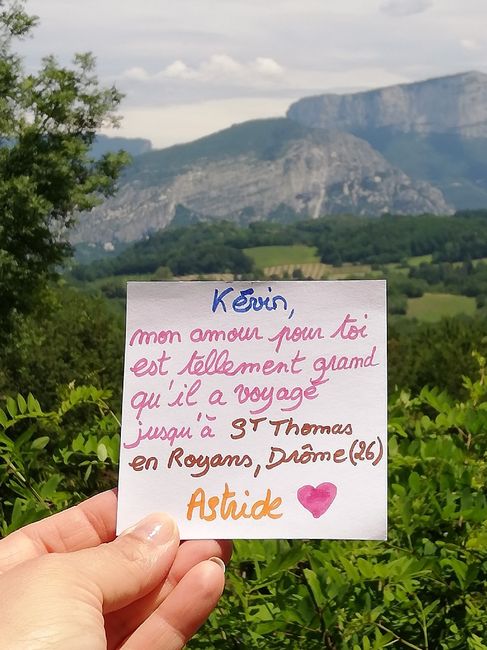 Kévin,
mon amour pour toi
est tellement grand
qu'il a voyagé
jusqu'à ST Thomas
en Royans, Drôme (26)
Astride